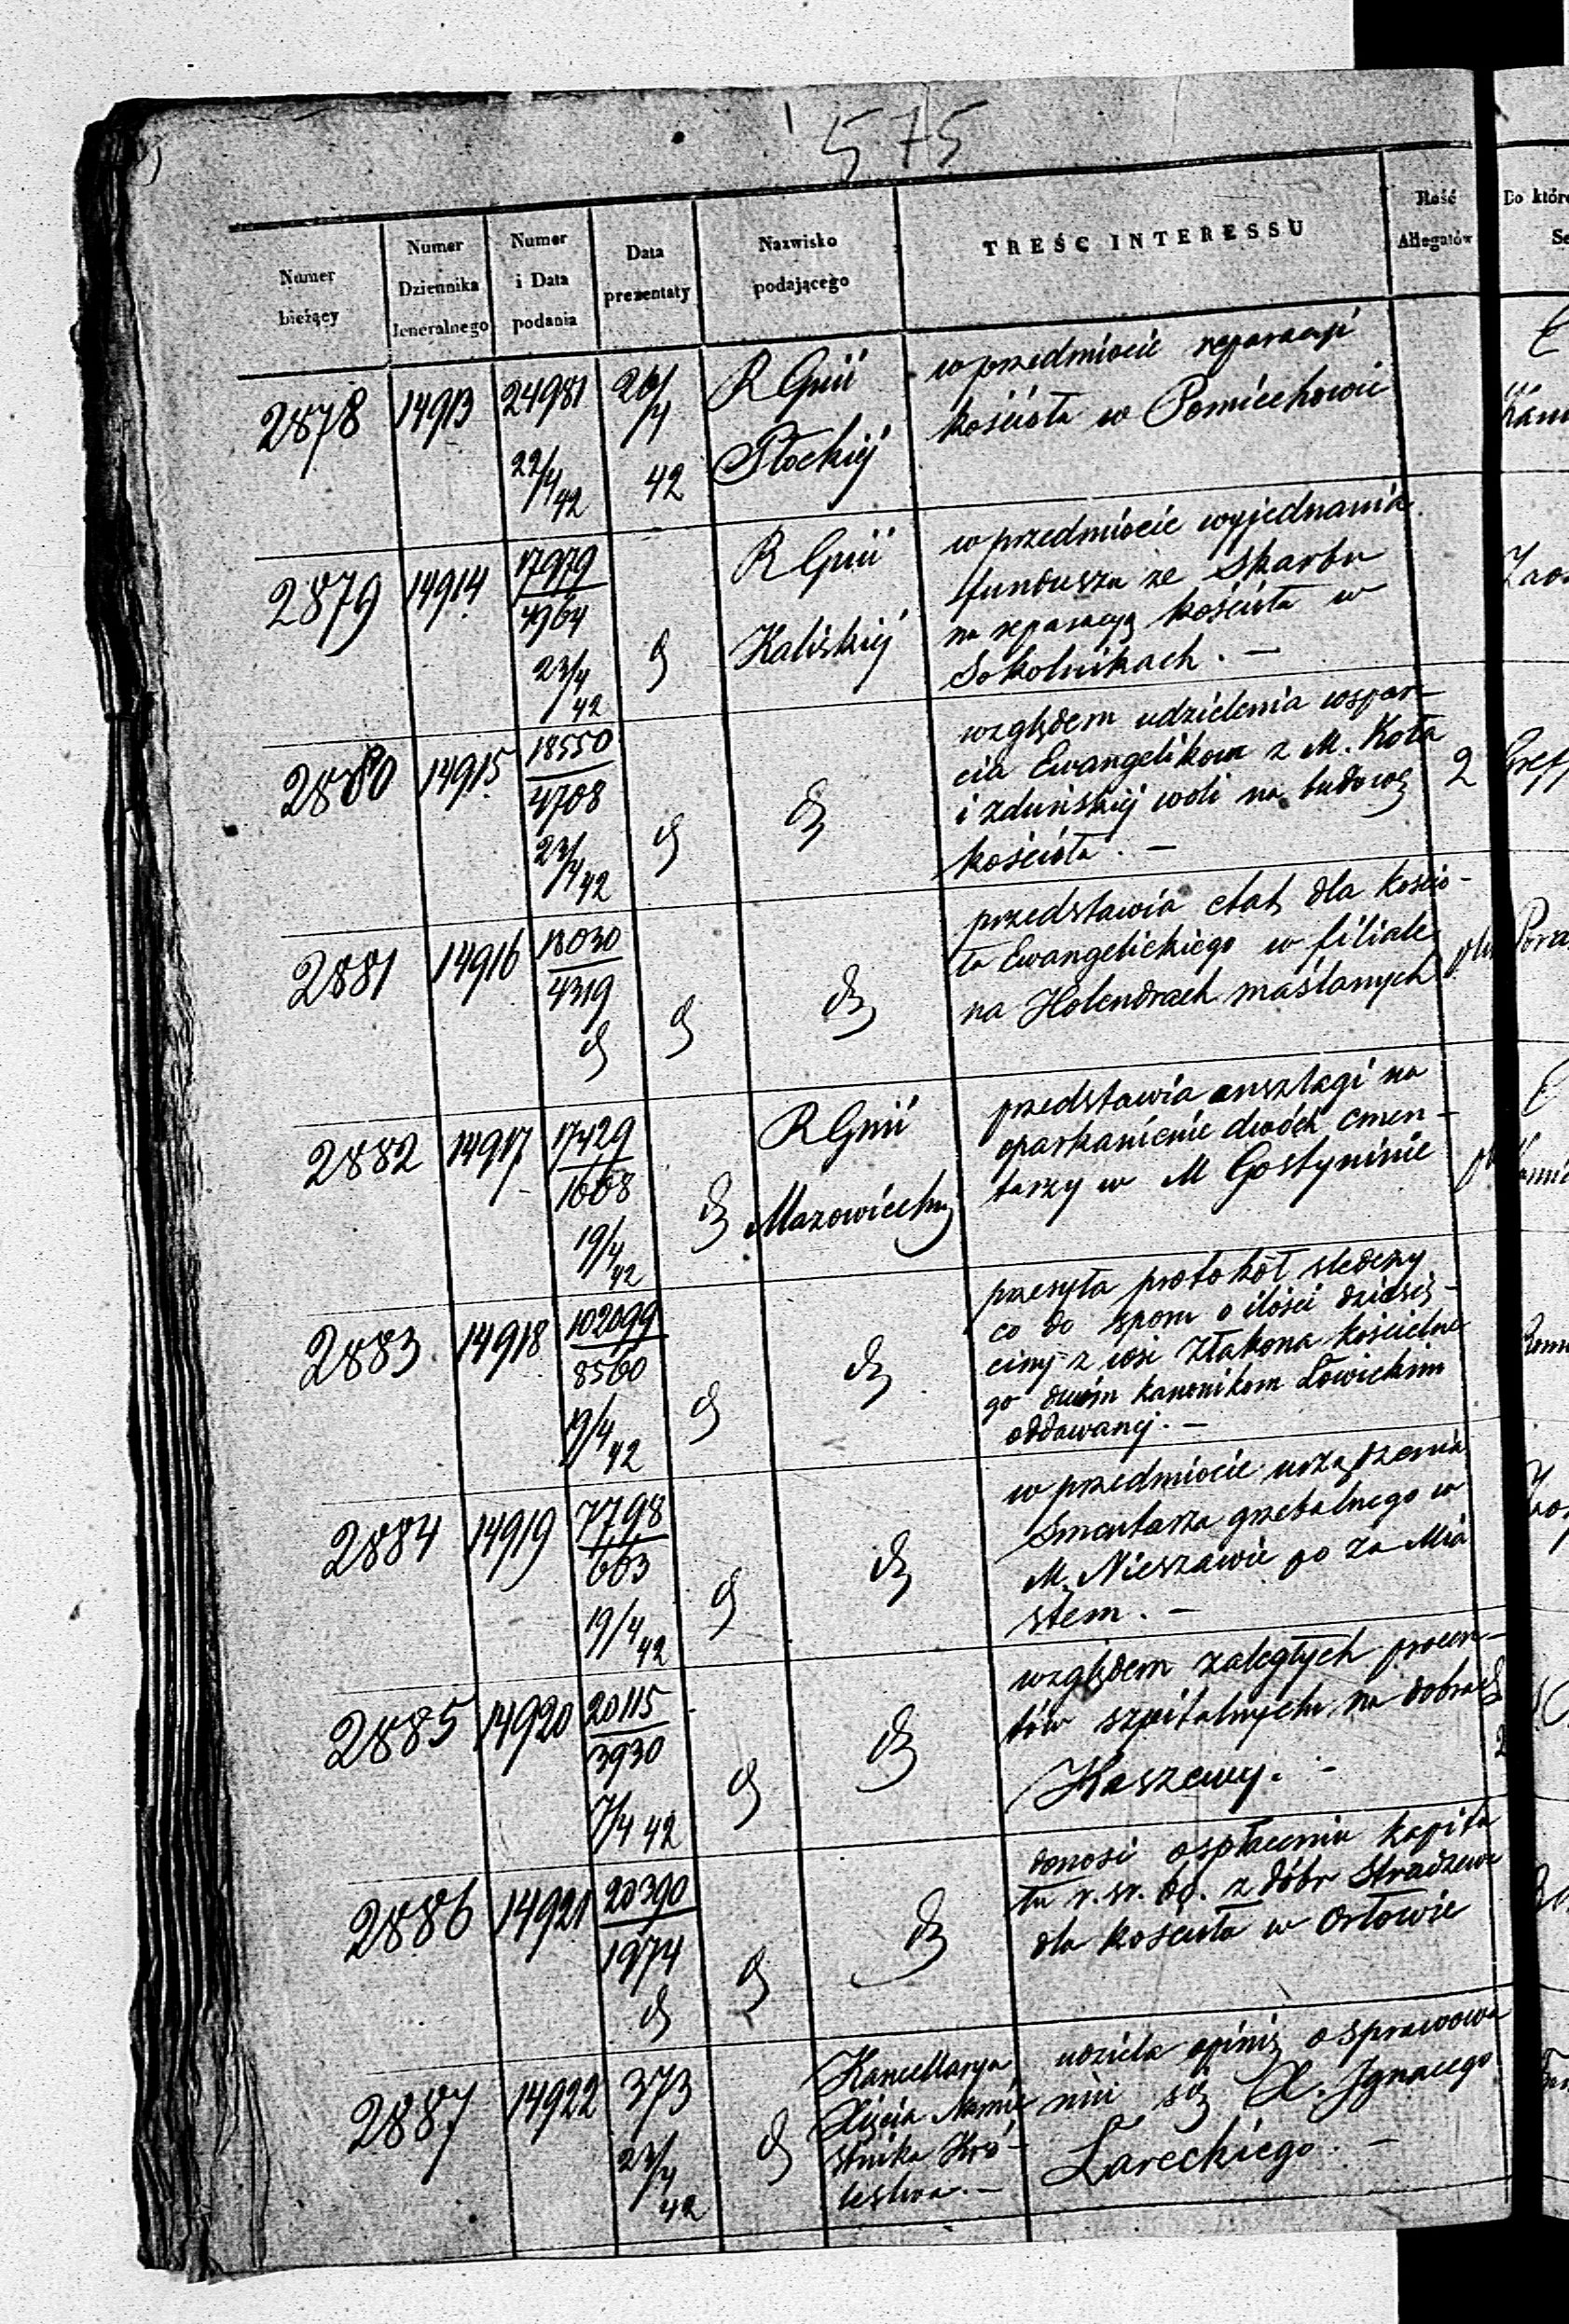 575
Numer bieżący
Numer Dziennika Jeneralnego
Numer i Data podania
Data prezentaty
Nazwisko podającego
TREŚC INTERESSU
Ilość Allegatów
Do któr
Se
2878 14913 24981 22/4 42 26/4 42 R Gnii Płockiéj
w przedmiocie reparacji
kościoła w Pomiechowie
2879 14914 17979 23/4 42 R Gnii Kaliskiéj
w przedmiocie wyjednania
funduszu ze Skarbu
na reparacyą kościoła w
Sokolnikach. —
2880 14915 18550 4708 23/4 42
względem udzielenia wspar-
cia Ewangelikom z M. Koła
i zduńskiéj woli na budowę
kościoła. —
2
2881 14916 18030 4319
przedstawia etat dla kościo-
ła Ewangelickiego w filiale
na Holendrach maślanych
2882 14917 17429 1668 19/4 42 R Gnii Mazowieckiéj
przedstawia anszlagi na
oparkanienie dwóch cmen-
tarzy w M Gostyninie
2883 14918 102099 8560 19/4 42
przesyła protokół śledczy
co do sporu o ilości dziesię-
ciny z wsi Złakowa kościelne
go dwóm kanonikom Łowickim
oddawanéj. —
2884 14919 7798 663 19/4 42
w przedmiocie urządzenia
Smentarza grzebalnego w
M. Nieszawie po za Mia
stem. —
2885 14920 20115 3930 7/4 42
względem zaległych procen-
tów szpitalnych na dobrach
Kaszewy. —
2886 14921 20390 1974
donosi o spłaceniu kapita
łu r. sr. 60. z dóbr Stradzewa
dla kościoła w Orłowie
2887 14922 373 23/4 42
Kancellarya
Xięcia Namie
stnika Kró-
lestwa. —
udziela opinię o sprawowa
niu się X. Ignacego
Lareckiego. —